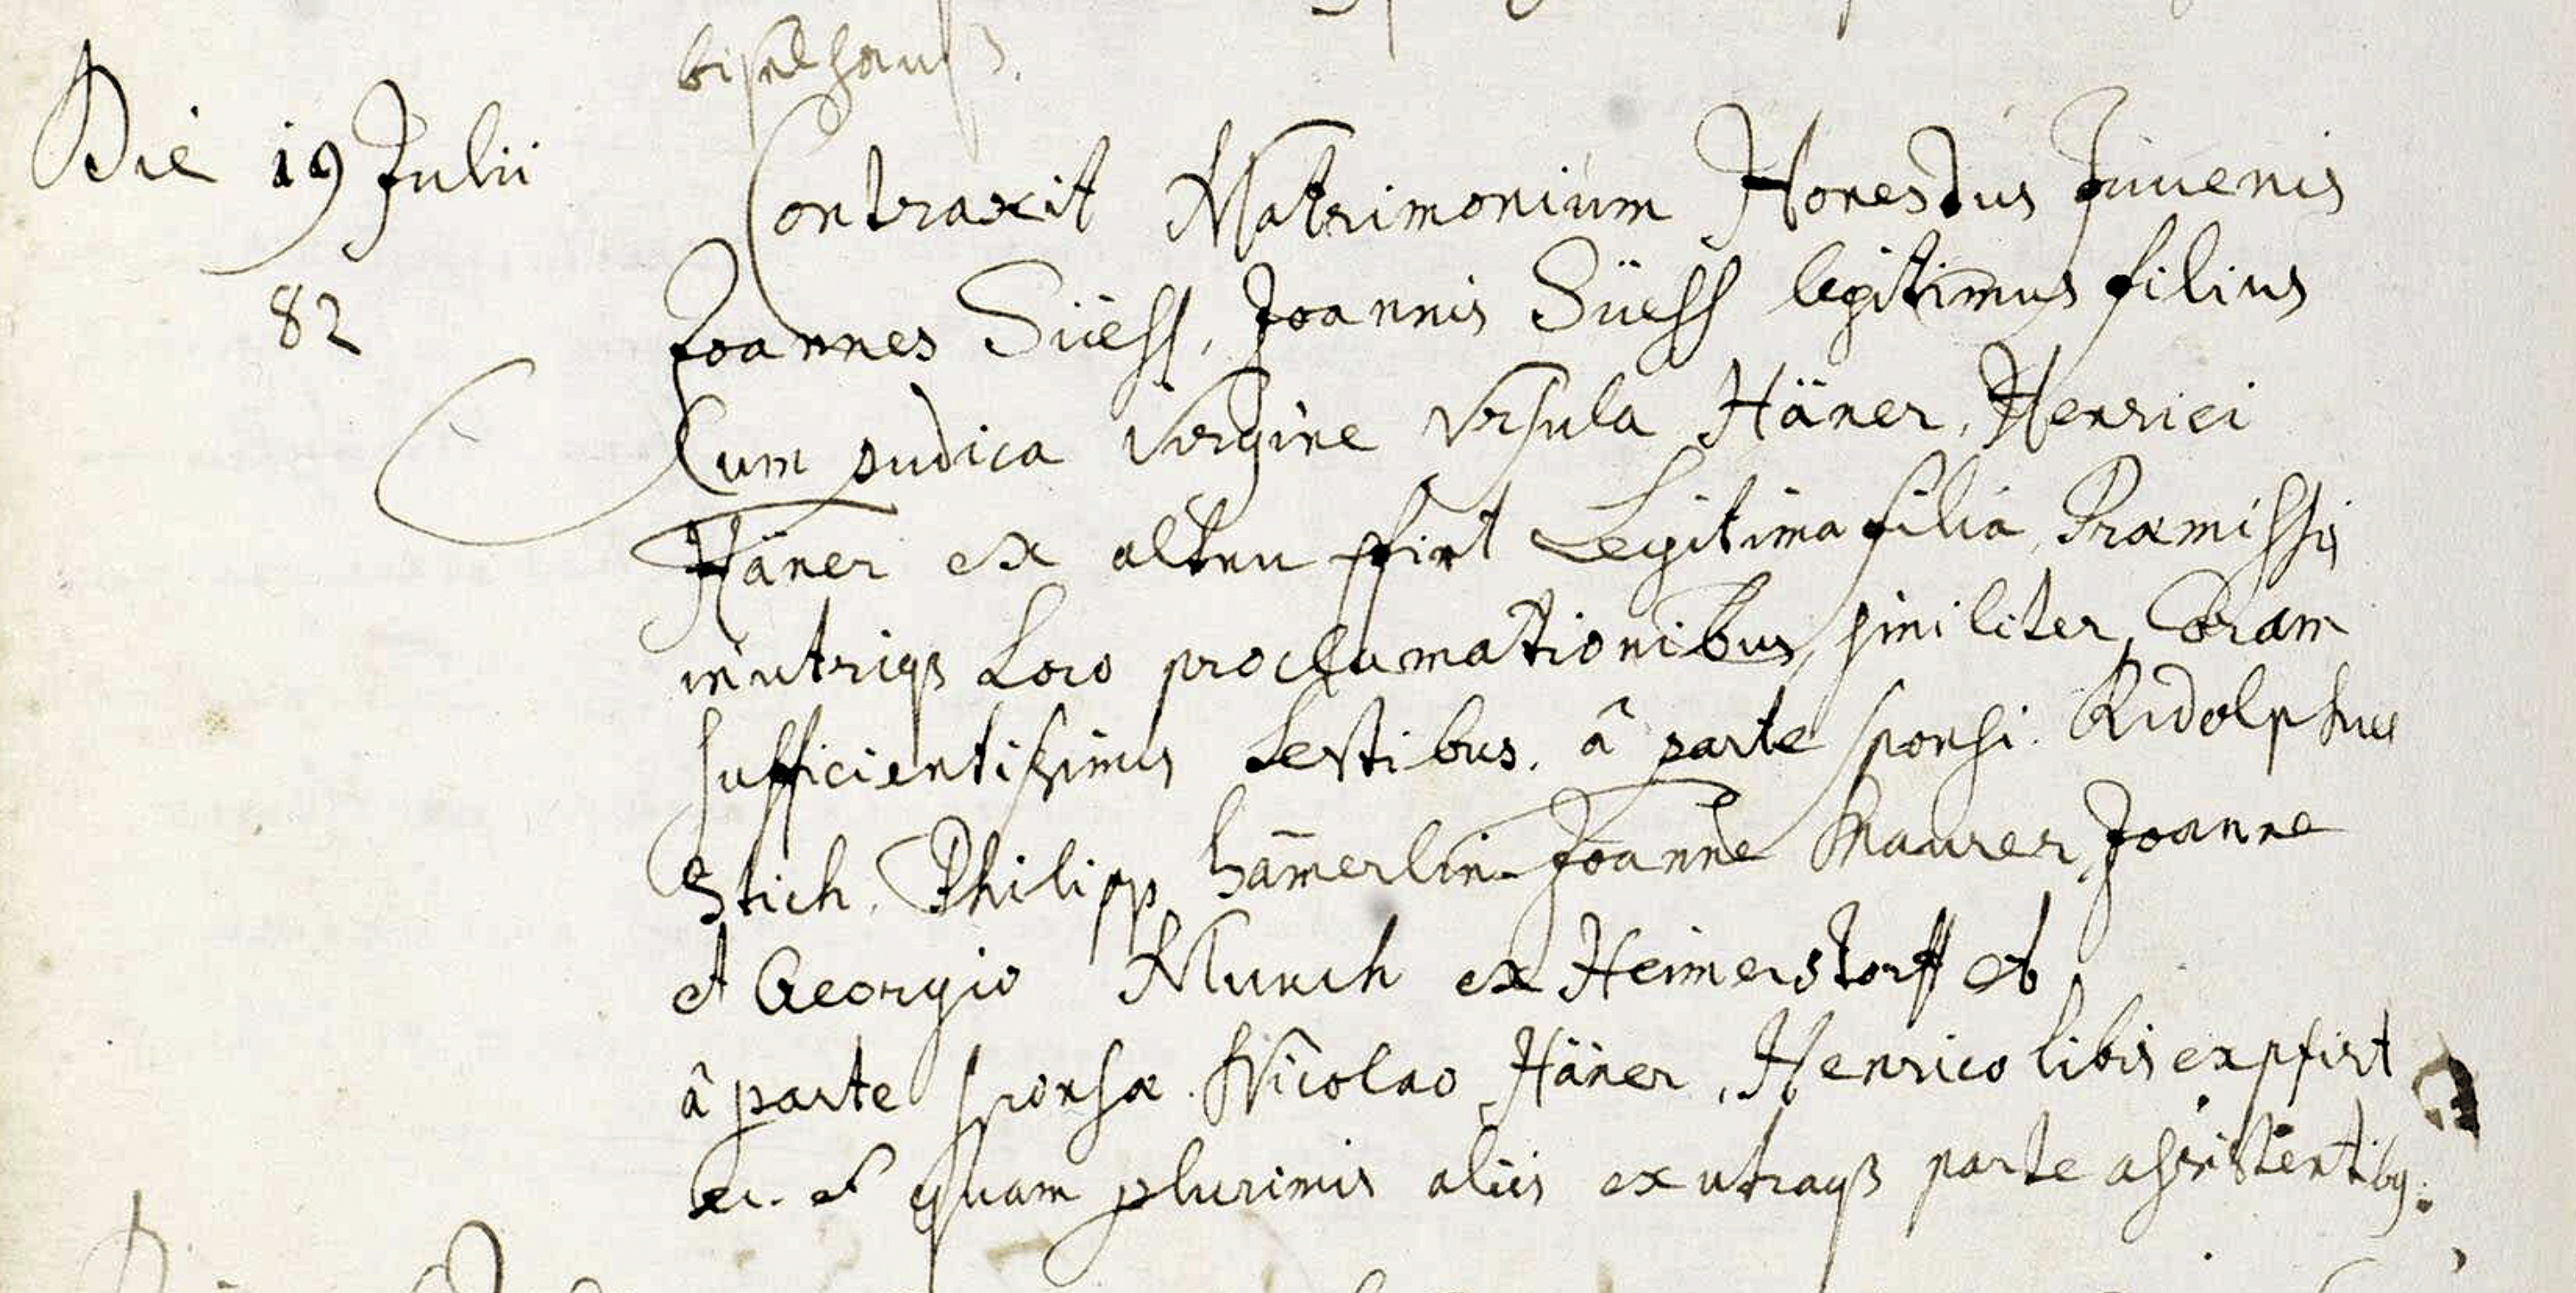 biselhauß.
Die 19 Julii
82
Contraxit Matrimonium Honestus Juuenis
Joannes Süess, Joannis Süess legitimus filius
Cum pudica Virgine Vrsula Häner, Henrici
Häner ex altnu pfirt Legitima filia, Præmissis
in utriqȝ Loco proclamationibus, similiter, Coram
sufficientissimis testibus. â parte sponsi. Ridolphus
Stich, Philipp hamerlin Joanne Maurer, Joanne
et Georgio Munch ex Heimerstorff et
â parte sponsæ. Nicolao Häner, Henrico libis ex pfirt
et quam plurimis aliis ex utraqȝ parte assistentibȝ.